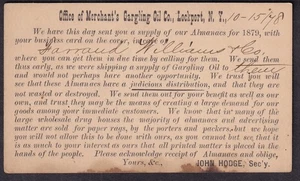 Office of Merchant's Gargling Oil Co., Lockport, N. Y., 10-15/78
We have this day sent you a supply of our Almanacs for 1879, with
your business card on the cover, in care of
Garraud Williams & Co.
where you can get them in due time by calling for them. We send
them early, as we were shipping a supply of Gargling Oil to them
and would not perhaps have another opportunity. We trust you will
see that these Almanacs have a judicious distribution, and that they are
not wasted or destroyed. We send them out for your benefit as well as
our own, and trust they may be the means of creating a large demand for our
goods among your immediate customers. We know that in many of the
large wholesale drug houses the majority of almanacs and advertising
matter are sold for paper rags, by the porters and packers, but we hope
you will not allow this to be done with ours, as you cannot but see, that
it is as much to your interest as ours that all printed matter is placed in the
hands of the people. Please acknowledge receipt of Almanacs and oblige,
Yours, &c., JOHN HODGE, Sec'y.